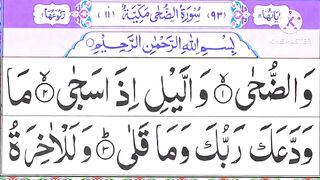 اٰيَاتُهَا ١١ (٩٣) سُوْرَةُ الضُّحٰى مَكِّيَّةٌ (١١) رُكُوْعُهَا ١
بِسْمِ اللّٰهِ الرَّحْمٰنِ الرَّحِيْمِ
وَالضُّحٰى ۝١ وَالَّيْلِ اِذَا سَجٰى ۝٢ مَا
وَدَّعَكَ رَبُّكَ وَمَا قَلٰى ۝٣ وَلَلْاٰخِرَةُ